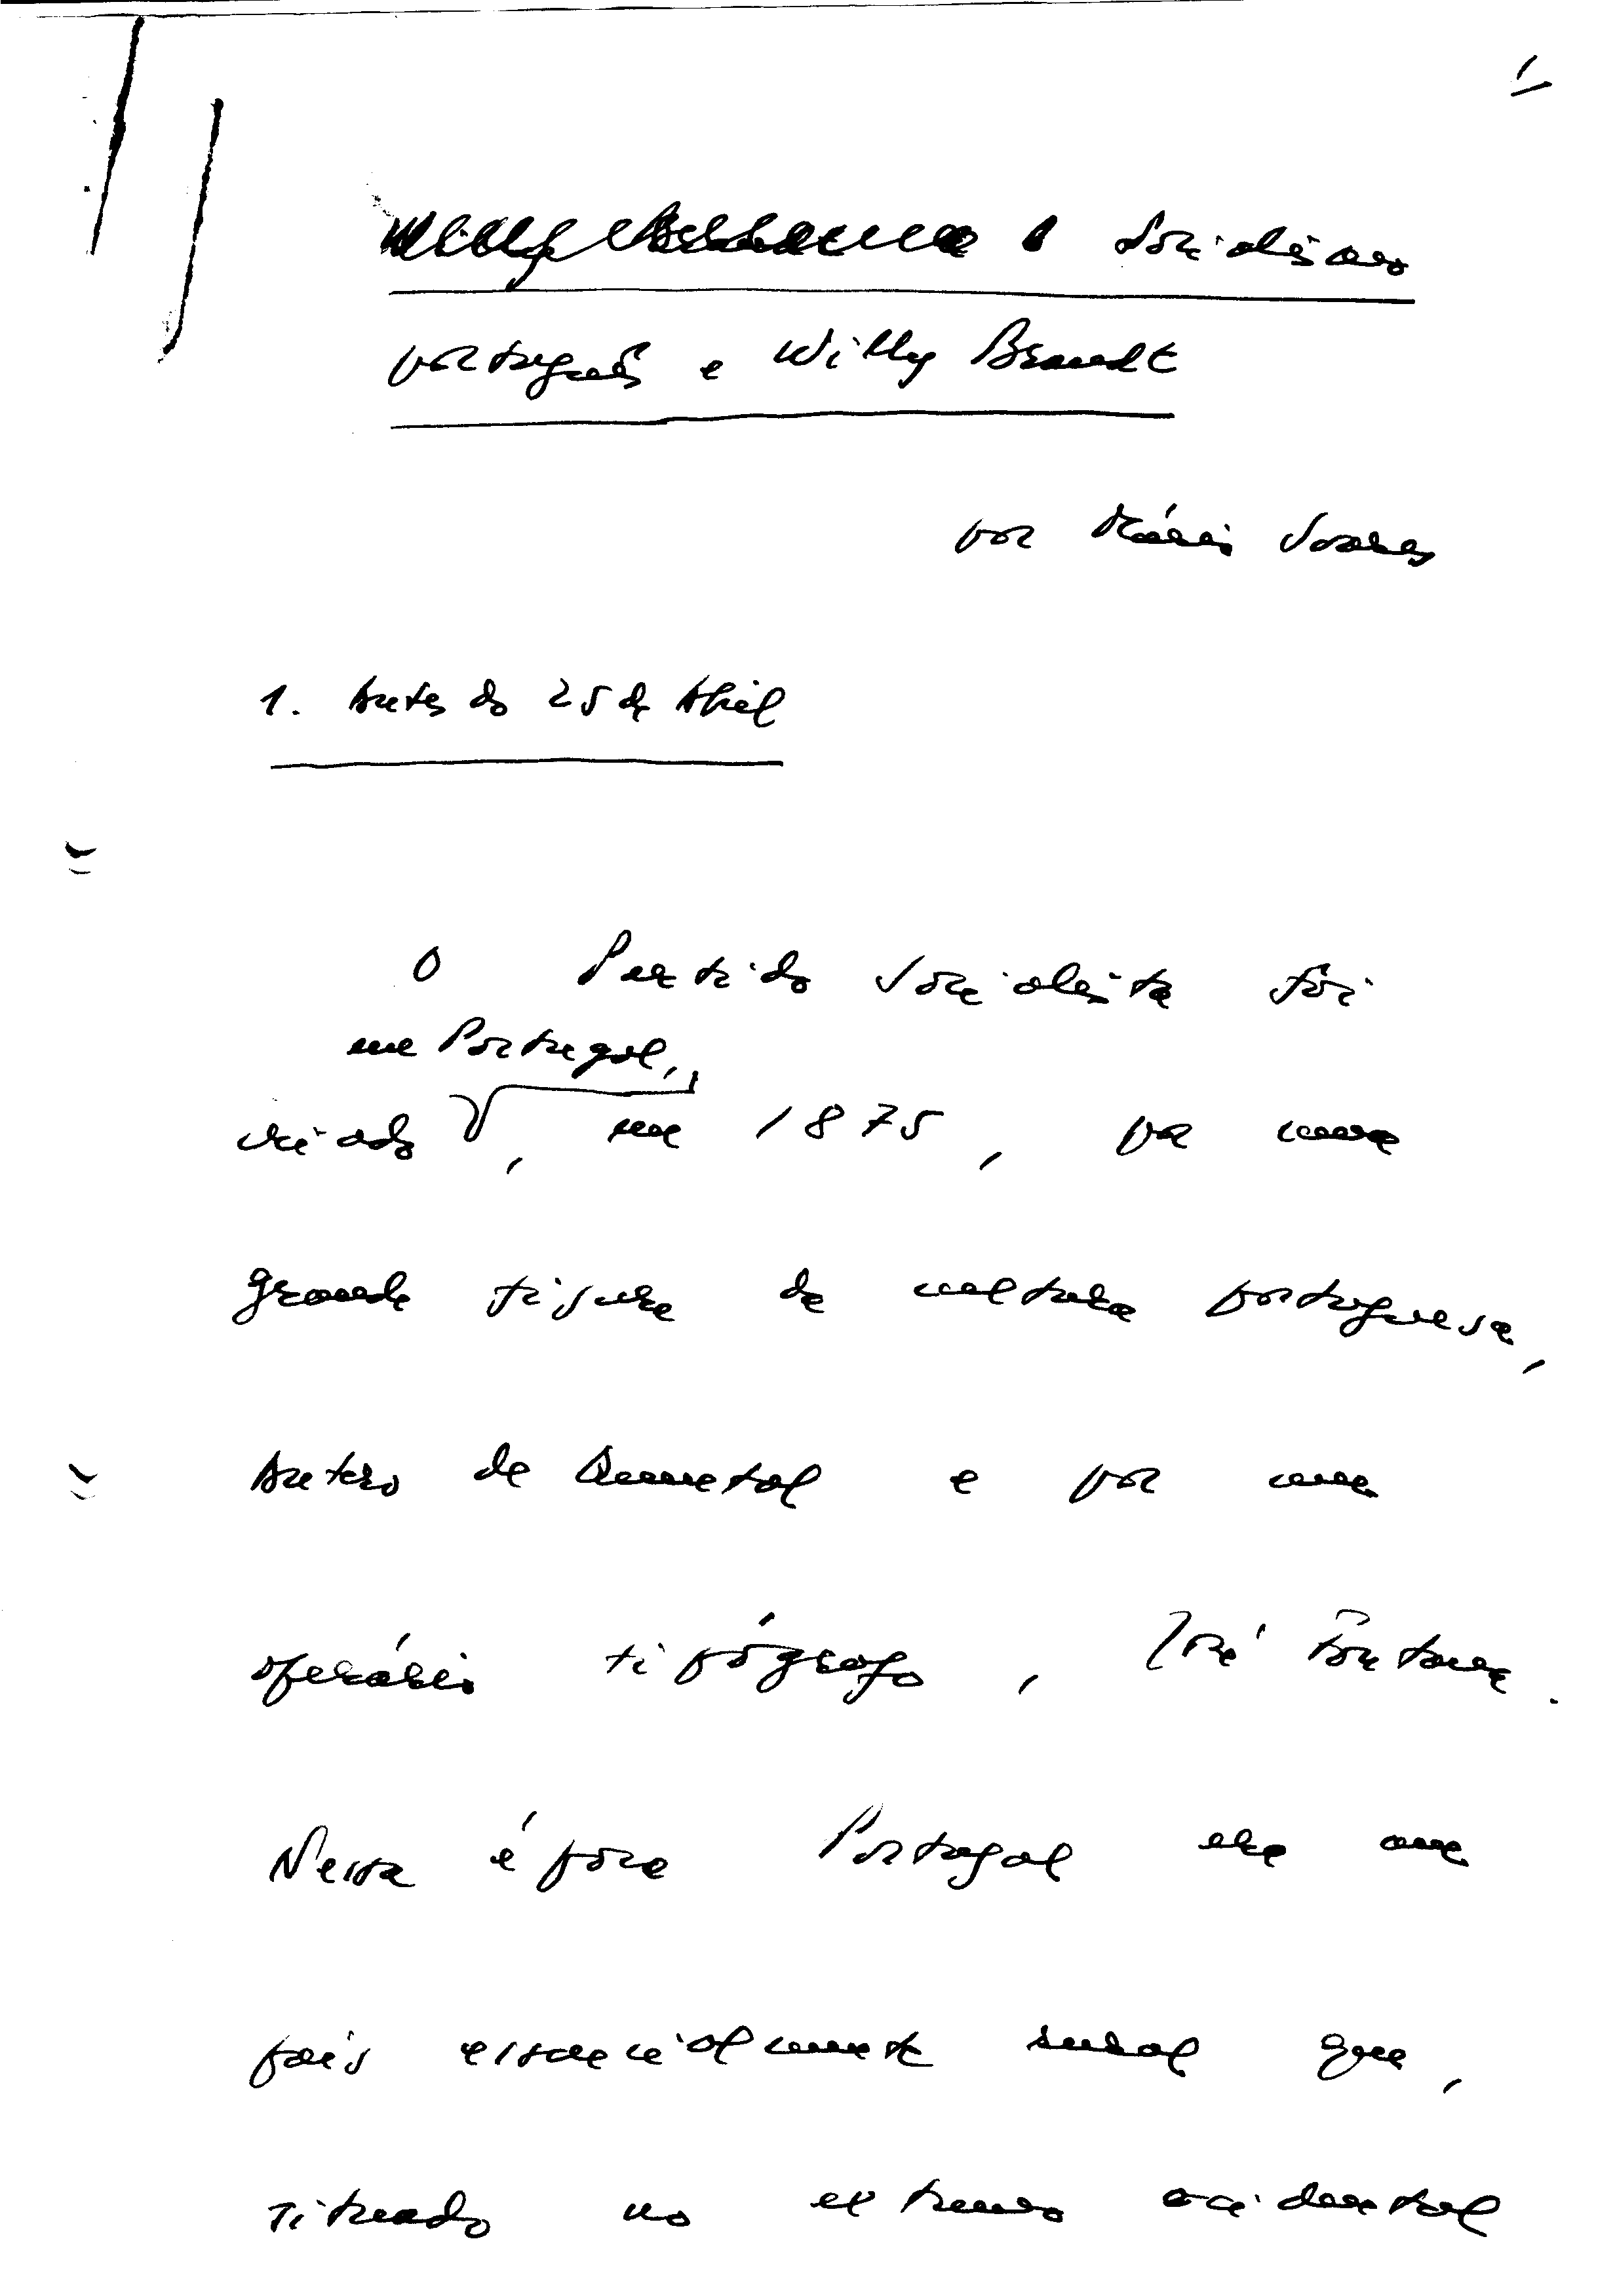 1
O Socialismo
português e Willy Brandt
por Mário Soares
1. Antes do 25 de Abril
O Partido Socialista foi
em Portugal,
criado, em 1875, por uma
grande figura da cultura portuguesa,
Antero de Quental e por um
operário tipógrafo, José Fontana.
Nessa época Portugal era um
país essencialmente rural que,
situado no extremo ocidental